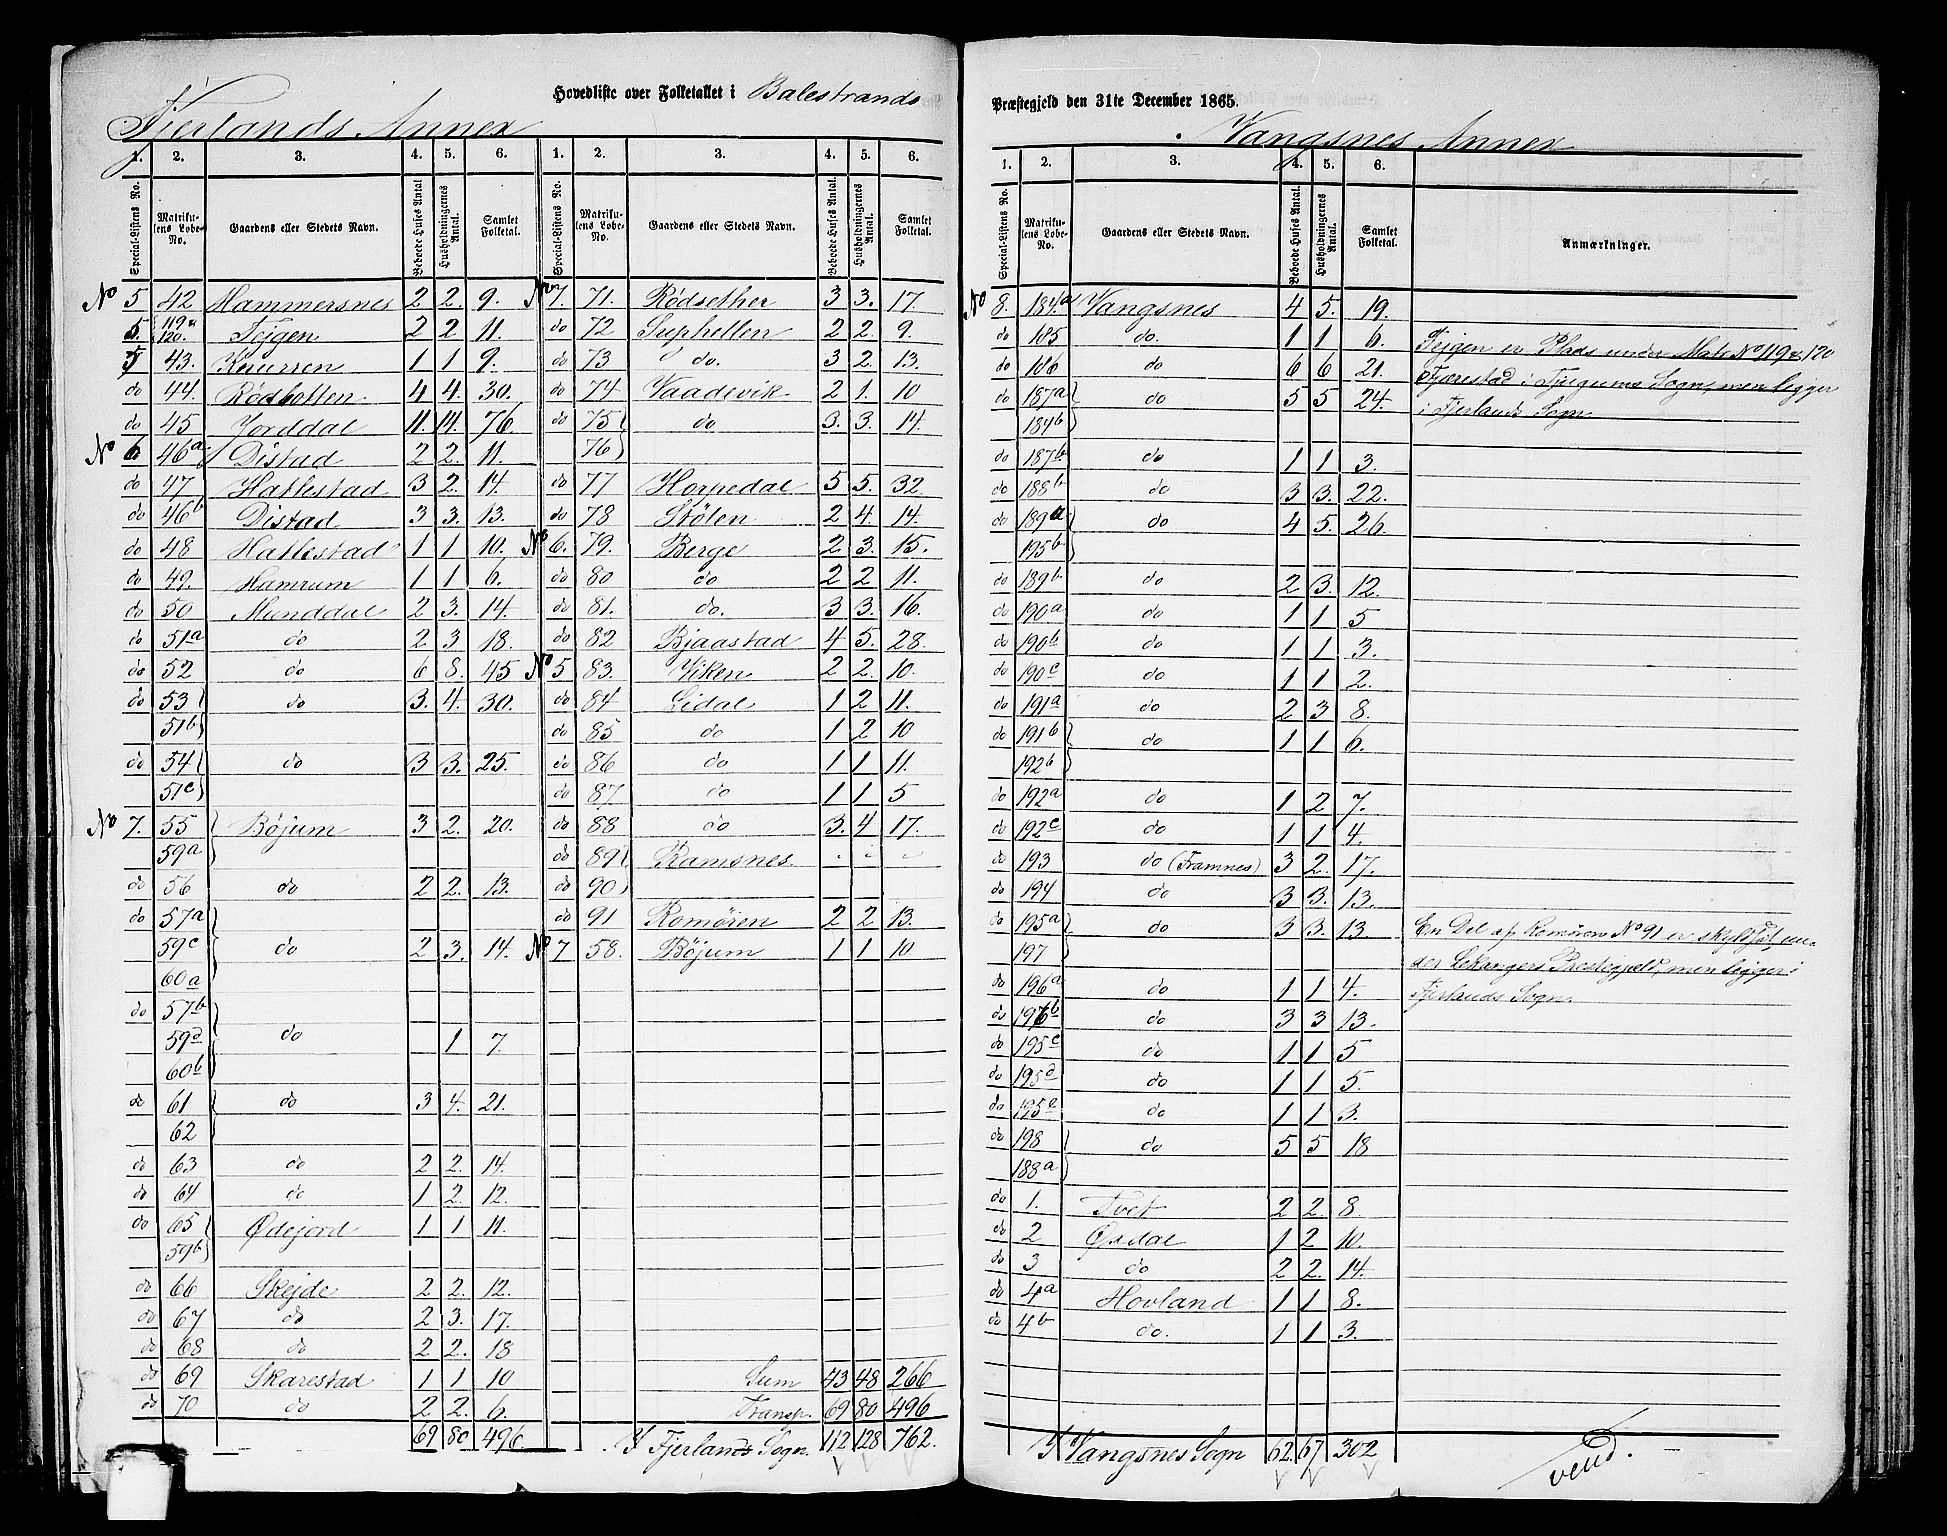 Hovedliste over Folketallet i Balestrands
Fjerlands Annex
1. 2. 3. 4. 5. 6. 1. 2. 3. 4. 5. 6.
Special-Listens No. Matrikulens Løbe-No. Gaardens eller Stedets Navn. Beboede Huses Antal Husholdningernes Antal. Samlet Folketal. Special-Listens No. Matrikulens Løbe-No. Gaardens eller Stedets Navn. Beboede Huses Antal. Husholdningernes Antal. Samlet Folketal.
No 5 42 Hammersnes 2 2. 9. No 7. 71. Rødsether 3 3. 17.
5. 119a 120. Fejgen 2 2 11. do 72 Suphellen 2 2. 9.
5 43. 1 1 9. do 73 do. 3 2. 13.
do 44. Rødbotten 4 4. 30. do 74 Vaadevik 2 1. 10
do 45 Jorddal 11. 14. 76. do 75 do 3. 3. 14.
No 6 46a Distad 2 2. 11. 76
do 47 Hatlestad 3 2. 14. do 77 Horpedal 5 5. 32.
do 46b Distad 3 3. 13. do 78 Stølen 2 4. 14.
do 48 Hatlestad 1 1 10. No 6. 79. Berge 2 3. 15.
do 49. Hamrum 1 1 6. do 80 do 2 2 11.
do 50 Munddal 2 3. 14. do 81. do. 3 3. 16.
do 51a do 2 3 18. do 82 Bjaastad 4 5. 28.
do 52 do 6 8. 45 No 5 83. Viken 2 2. 10.
do 53 do 3. 4. 30. do 84 Lidal 1 2 11.
51b do 85 do 1 2 10
do 54 do 3 3. 25. do 86 do 1 1 11.
51c do 87 do 1 1 5
No 7. 55 Bøjum 3 2. 20. do 88 do 3. 4 17.
59a do 89 Ramsnes.
do 56 do 2 2. 13. do 90
do 57a do 91 Romøren 2 2 13.
59c do 2 3. 14. No 7 58. Bøjum 1 1 10
60a
do 57b
59d do 1 7.
60b
do 61 do 3 4. 21.
62
do 63 do 2 2. 14.
do 64 do 1 2. 12.
do 65 Ødejord 1 1 11.
59b
do 66 Skejde 2 2. 12.
do 67 do 2 3. 17.
do 68 do 2 2. 18
do 69 Skarestad 1 1 10 Sum 43 48 266
do 70 do 2 2. 6. Transp. 69 80 496
69 80 496. I Fjerlands Sogn. 112 128 762.
Præstegjeld den 31te December 1865.
Vangsnes Annex
1. 2. 3. 4. 5. 6.
Special-Listens No. Matrikulens Løbe-No. Gaardens eller Stedets Navn. Beboede Huses Antal. Husholdningernes Antal. Samlet Folketal. Anmærkninger.
No 8. 184a Vangsnes 4 5. 19.
do 185 do 1 1 6. Fejgen er Plads under Matr No 119 & 120
do 186 do 6 6 21. Fjærestad i Tjugums Sogn, men ligger
do 187a do 5 5 24. i Fjerlands Sogn
184b
do 187b do 1 1 3.
do 188b do 3 3. 22.
do 189a do 4 5. 26.
195b
do 189b do 2 3. 12.
do 190a do 1 1 5
do 190b do 1 1 3.
do 190c do 1 1 2.
do 191a do 2 3 8.
do 191b do 1 1 6.
192b
do 192a do 1 2 7.
do 192c do 1 1 4.
do 193 do (Framnes) 3 2. 17.
do 194 do 3 3. 13.
do 195a do 3 3. 13 En Del af Romøren No 91 er skyldsat un-
197 der Lekangers Præstegjeld, men ligger i
do 196a do 1 1 4. Fjerlands Sogn.
do 196b do 3 3 13.
do 195c do 1 1 5
do 195d do 1 1 5.
do 195e do 1 1 3.
do 198 do 5 5 18
188a
do 1. Tvet 2 2. 8.
do 2 Øvdal 1 2 10.
do 3 do 2 2. 14.
do 4a Hovland 1 1 8.
do 4b do. 1 1 3.
I Vangsnes Sogn 62. 67 302
vend.